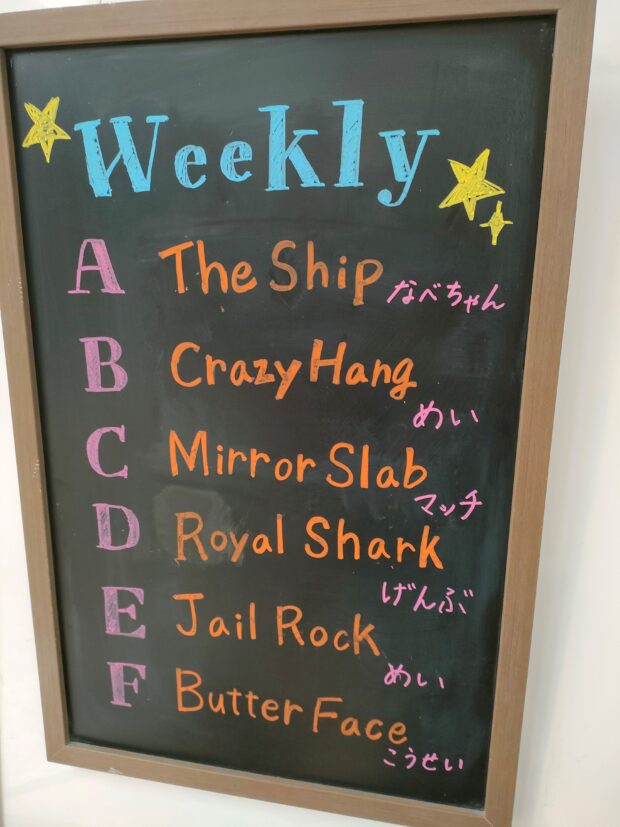 Weekly
A The Ship なべちゃん
B Crazy Hang
めい
C Mirror Slab
マッチ
D Royal Shark
げんぶ
E Jail Rock
めい
F Butter Face
こうせい